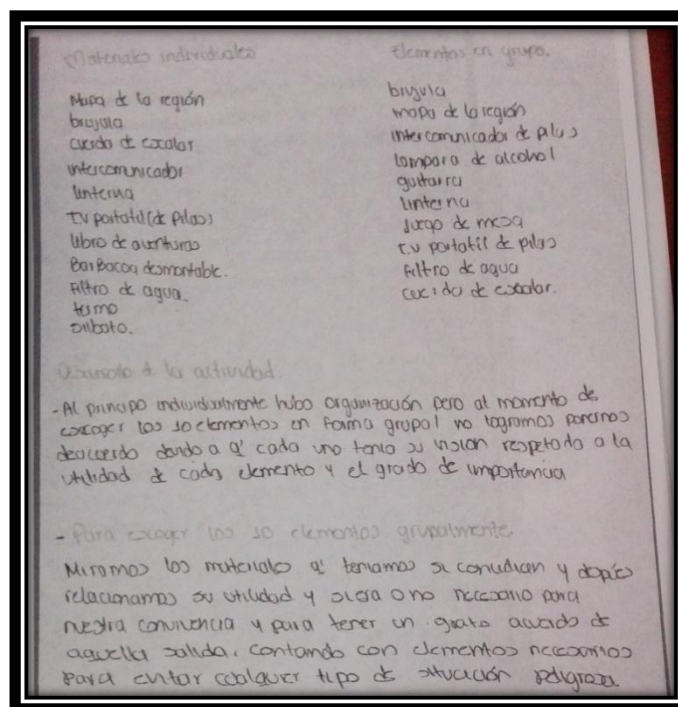 Materiales individuales
Mapa de la región
brujula
cuerda de escalar
intercomunicador
linterna
t.v portatil (de pilas)
libro de aventuras
BarBacoa desmontable.
Filtro de agua.
termo
silbato.
Elementos en grupo.
brujula
mapa de la región
intercomunicador de pilas
lampara de alcohol
guitarra
linterna
Juego de mesa
t.v portatil de pilas
Filtro de agua
cuerda de escalar.
Desarrollo de la actividad.
-Al principo individualmente hubo organización pero al momento de
escoger los 10 elementos en forma grupal no logramos ponernos
deacuerdo dando a q' cada uno tenia su vision respetado a la
utilidad de cada elemento y el grado de importancia
- Para escoger los 10 elementos grupalmente
Miramos los materiales q' teniamos si y
relacionamos su utilidad y si era o no necesario para
nuestra convivencia y para tener un grato de
aquella salida. contando con elementos necesarios
para evitar cualquer tipo de situación peligrosa